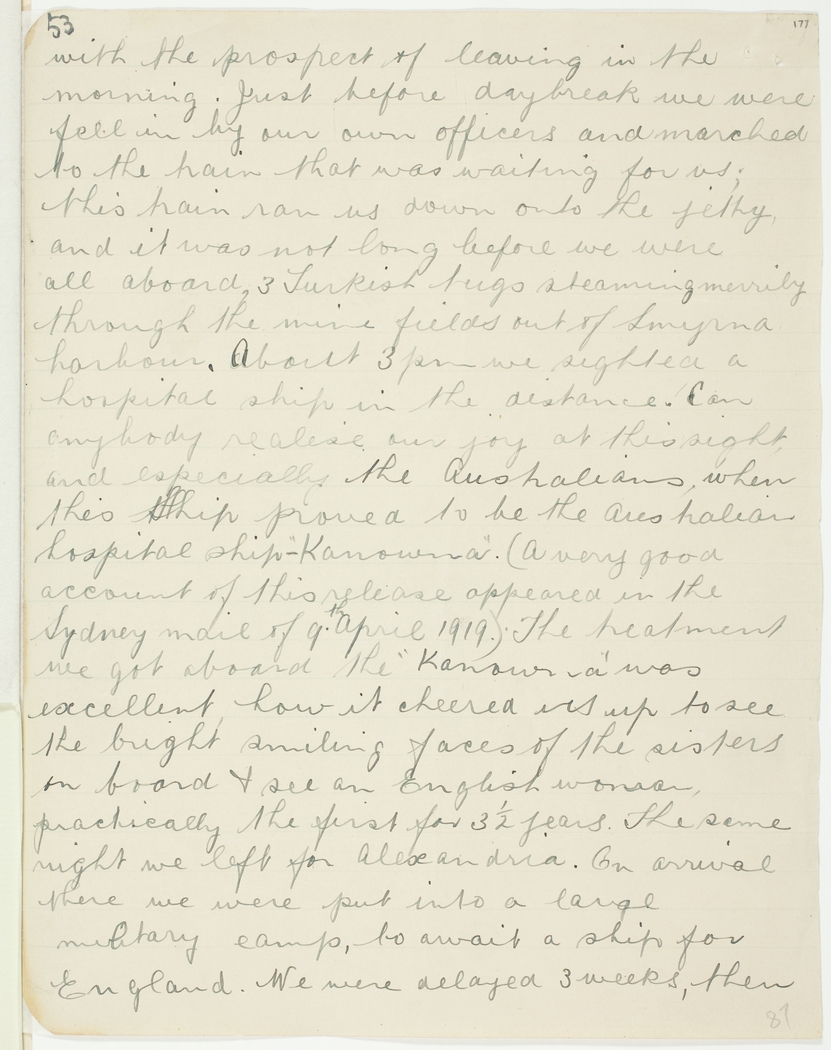 53
177
with the prospect of leaving in the
morning. Just before daybreak we were
fell in by our own officers and marched
to the train that was waiting for us;
this train ran us down onto the jetty,
and it was not long before we were
all aboard, 3 Turkish tugs steaming merrily
through the mine fields out of Smyrna
harbour. About 3 pm we sighted a
hospital ship in the distance. Can
anybody realise our joy at this sight,
and especially the Australians, when
this ship proved to be the Australian
hospital ship-"Kanowna". (A very good
account of this release appeared in the
Sydney mail of 9.th April 1919). The treatment
we got aboard the "Kanowna" was
excellent, how it cheered us up to see
the bright smiling faces of the sisters
on board & see an English woman,
practically the first for 3½ years. The same
night we left for Alexandria. On arrival
there we were put into a large
military camp, to await a ship for
England. We were delayed 3 weeks, then
87